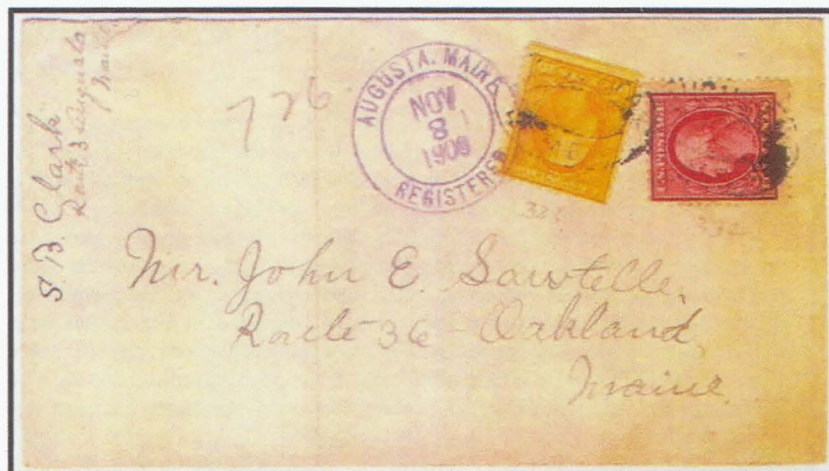 S. B. Clark
Route 3 Augusta
Maine
726
AUGUSTA, MAINE
NOV
8
1909
REGISTERED
U.S. POSTAGE
332
Mr. John E. Sawtelle,
Route 36 - Oakland,
Maine.